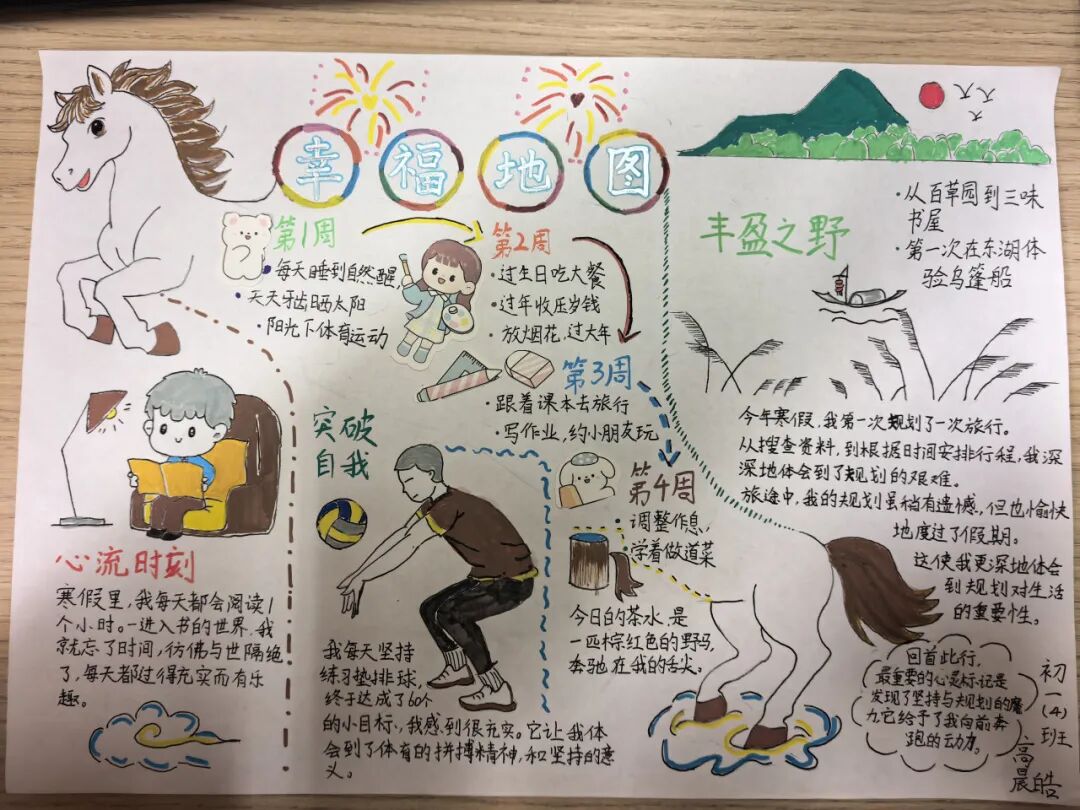 幸福地图
第1周
每天睡到自然醒
天天牙齿晒太阳
阳光下体育运动
第2周
·过生日吃大餐
·过年收压岁钱
·放烟花,过大年
第3周
·跟着课本去旅行
·写作业,约小朋友玩
第4周
·调整作息,
·学着做道菜
丰盈之野
·从百草园到三味
书屋
·第一次在东湖体
验乌篷船
今年寒假,我第一次规划了一次旅行。
从搜查资料,到根据时间安排行程,我深
深地体会到了规划的艰难。
旅途中,我的规划虽稍有遗憾,但也愉快
地度过了假期。
这使我更深地体会
到规划对生活
的重要性。
心流时刻
寒假里,我每天都会阅读1
个小时。一进入书的世界,我
就忘了时间,彷佛与世隔绝
了,每天都过得充实而有乐
趣。
突破
自我
我每天坚持
练习垫排球,
终于达成了60个
的小目标,我感到很充实。它让我体
会到了体育的拼搏精神,和坚持的意
义。
今日的茶水,是
一匹棕红色的野马,
奔驰在我的舌尖。
回首此行,
最重要的心灵标记是
发现了坚持与规划的魔
力,它给予了我向前奔
跑的动力。
初一(4)班
高晨皓